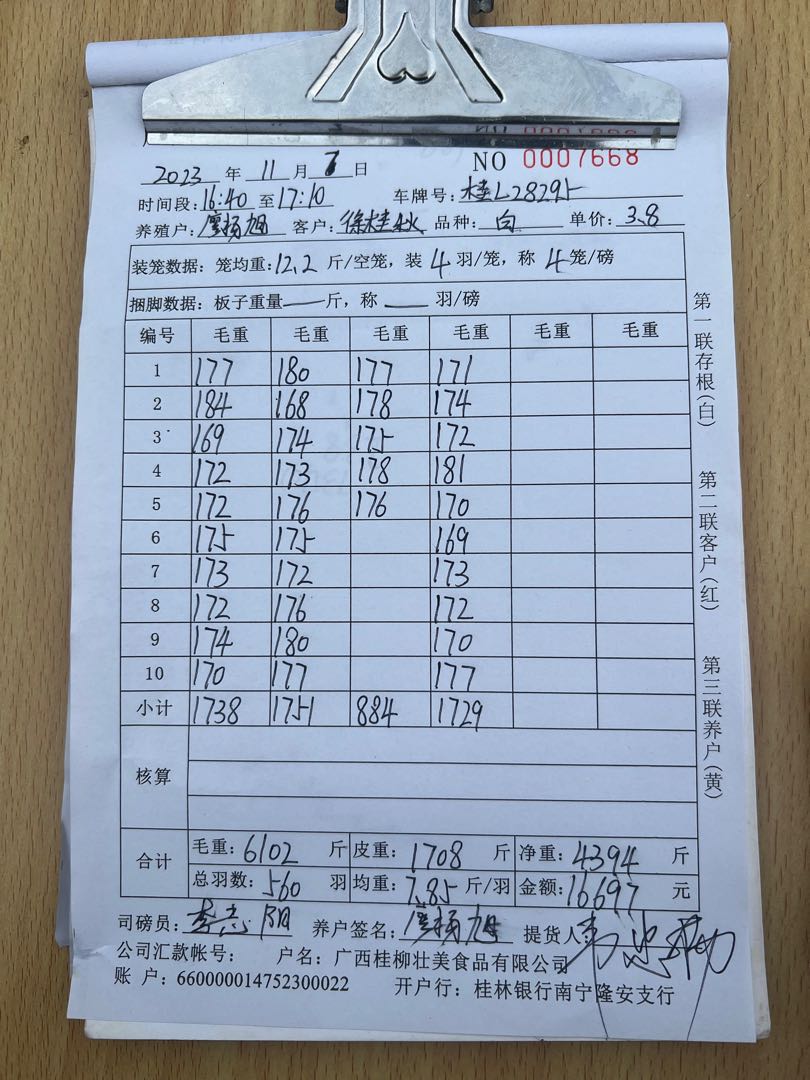 NO 0007668
2023 年 11 月 7 日
时间段: 16:40 至 17:10 车牌号: 桂L28295
养殖户: 廖扬旭 客户: 徐桂秋 品种: 白 单价: 3.8
装笼数据: 笼均重: 12.2 斤/空笼, 装 4 羽/笼, 称 4 笼/磅
捆脚数据: 板子重量 — 斤, 称 — 羽/磅
编号 毛重 毛重 毛重 毛重 毛重 毛重
1 177 180 177 171
2 184 168 178 174
3 169 174 175 172
4 172 173 178 181
5 172 176 176 170
6 175 175 169
7 173 172 173
8 172 176 172
9 174 180 170
10 170 177 177
小计 1738 1751 884 1729
核算
合计 毛重: 6102 斤 皮重: 1708 斤 净重: 4394 斤
总羽数: 560 羽 均重: 7.85 斤/羽 金额: 16697 元
司磅员: 李志阳 养户签名: 廖扬旭 提货人:
公司汇款帐号: 户名: 广西桂柳壮美食品有限公司
账户: 660000014752300022 开户行: 桂林银行南宁隆安支行
第一联存根(白)
第二联客户(红)
第三联养户(黄)